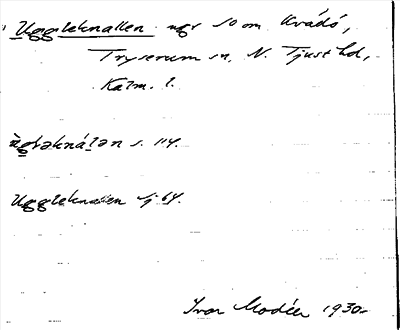 Uggleknallen ngr SO om Kvädö,
Tryserum sn, N. Tjust hd,
Kalm. l.
ùgləknálən s. 114.
Uggleknallen Gj 64.
Ivar Modéer 1930.